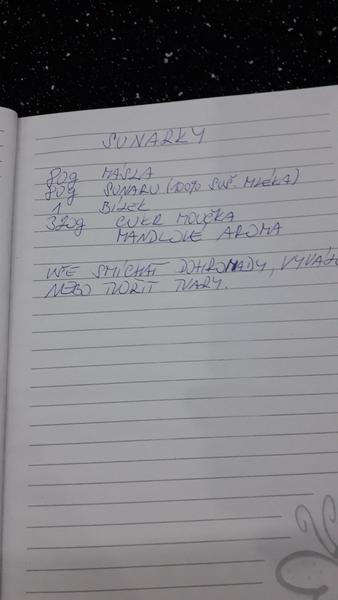 SUNARKY
80g MASLA
80g SUNARU (100% SUŠ. MLÉKA)
1 BÍLEK
320g CUKR MOUČKA
MANDLOVÉ AROMA
VŠE SMÍCHAT DOHROMADY,
NEBO TVOŘIT TVARY.